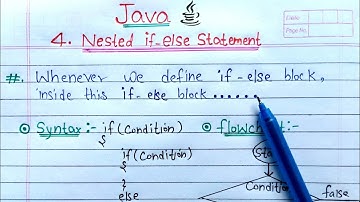 Java
Date
Page No.
4. Nested if-else Statement
#. Whenever we define if-else block,
inside this if-else block ......
Syntax :- if (Condition)
flowchart:-
{
if (Condition)
{
}
else
Condition
false